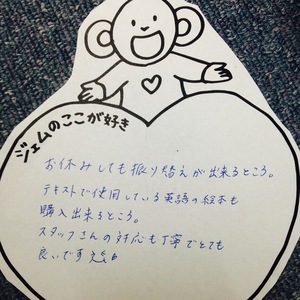 ジェムのここが好き
お休みしても振り替えが出来るところ。
テキストで使用している英語の絵本も
購入出来るところ。
スタッフさんの対応も丁寧でとても
良いです